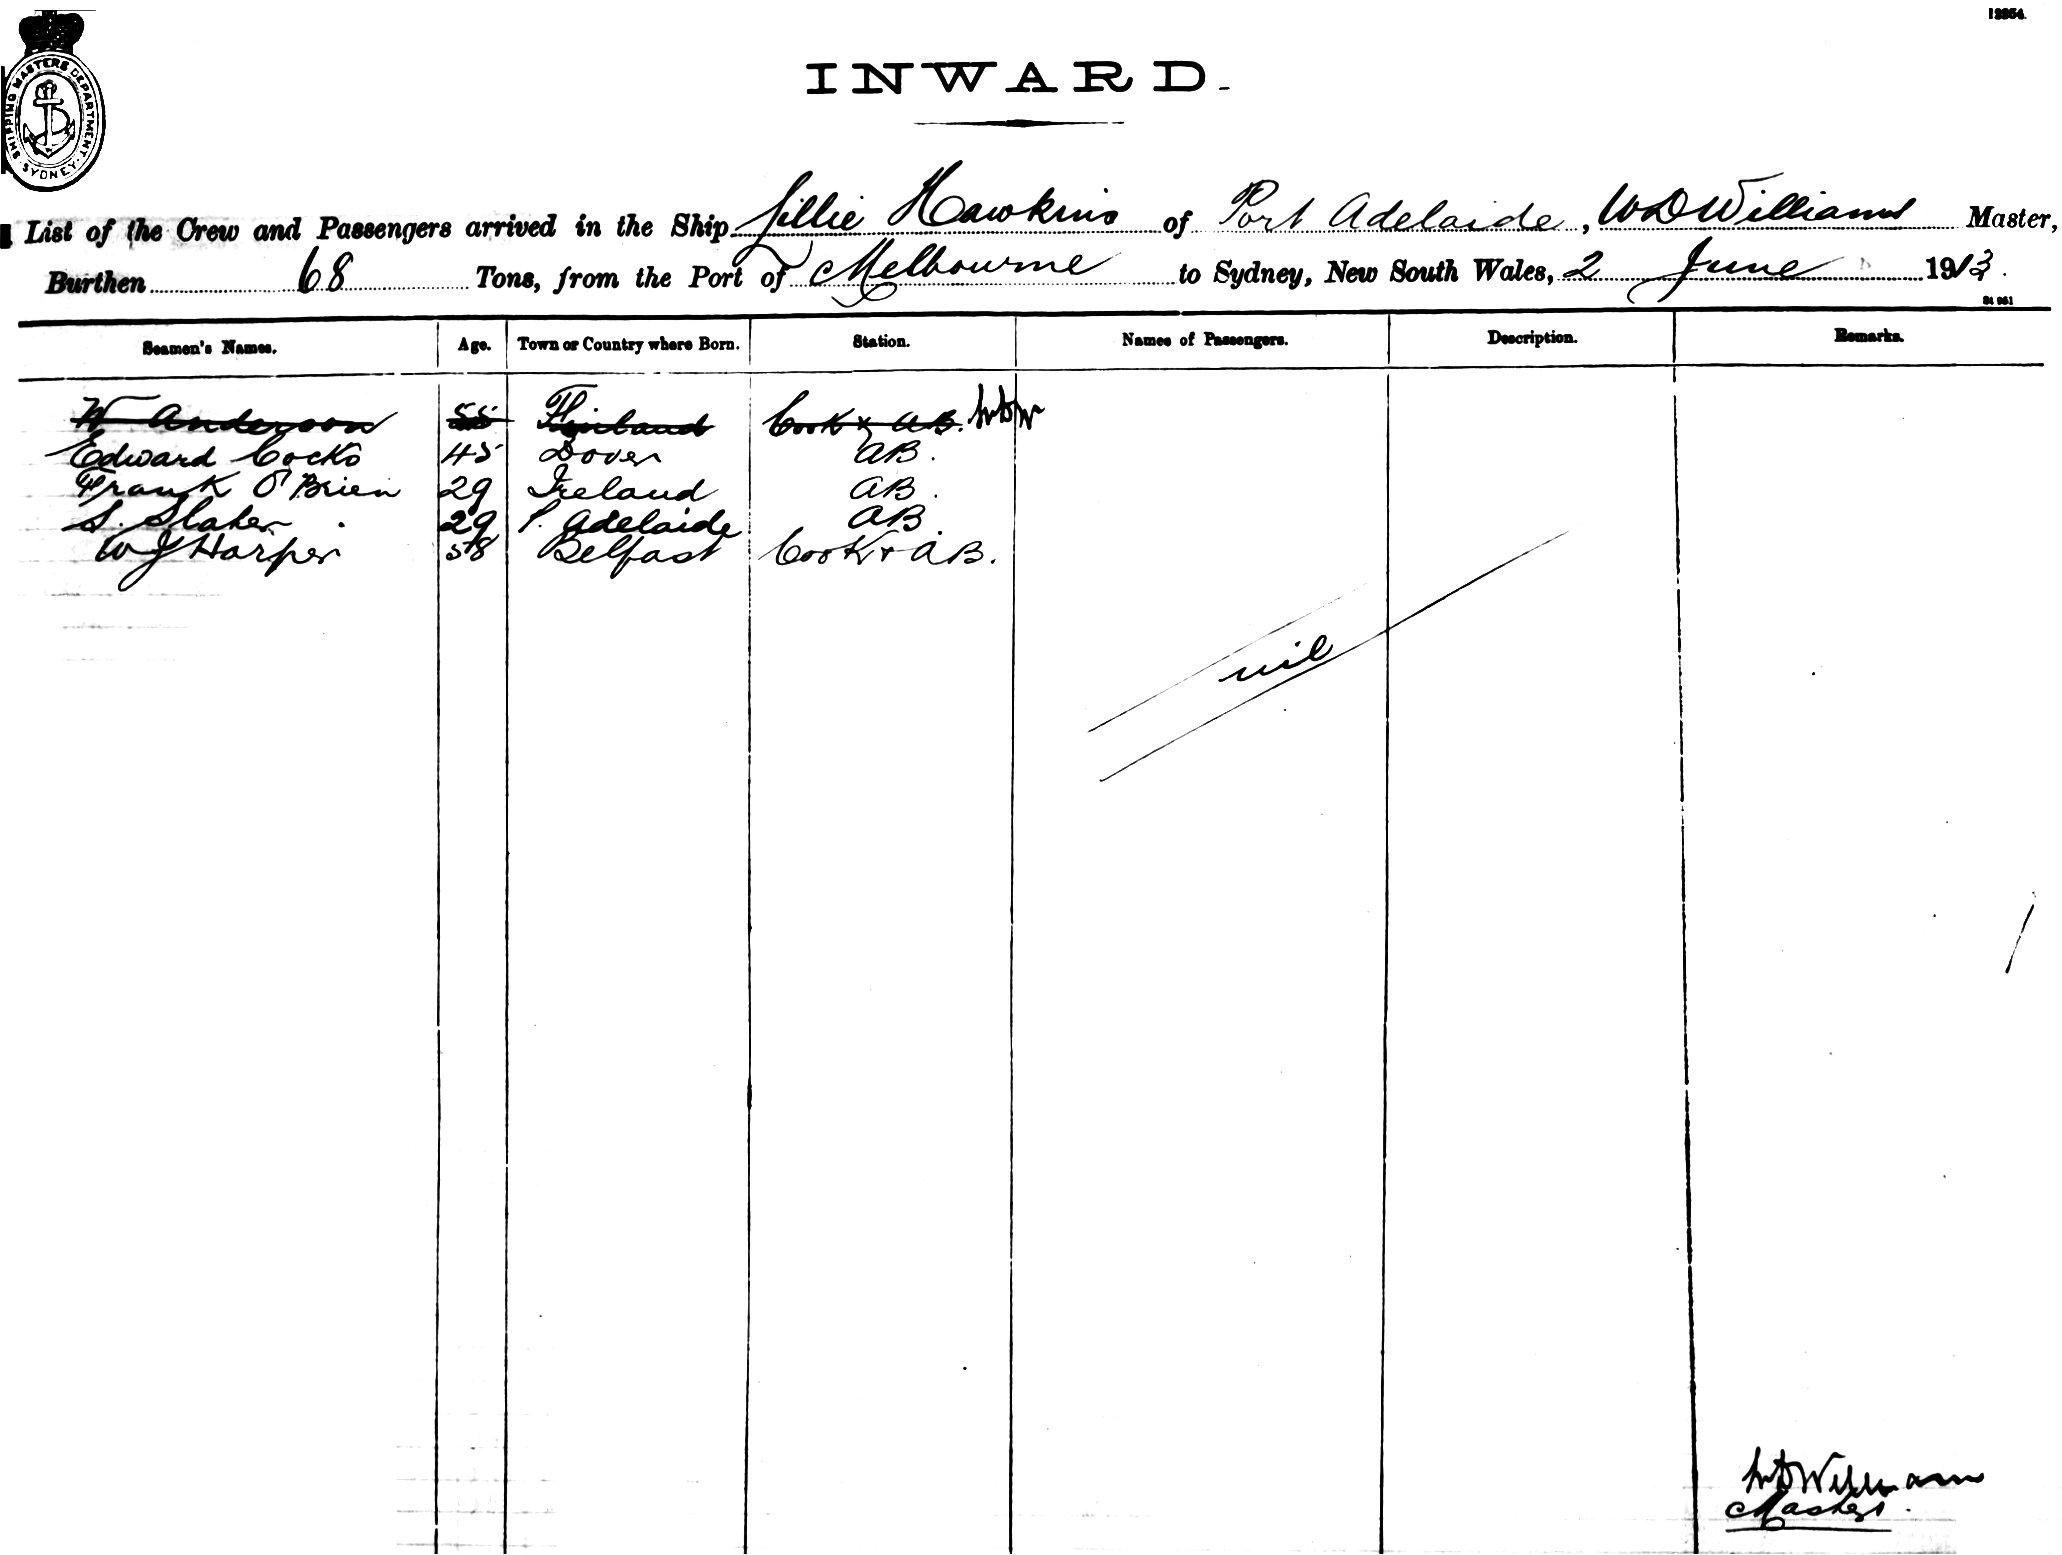 12954.
SHIPPING MASTERS DEPARTMENT. SYDNEY.
INWARD.
List of the Crew and Passengers arrived in the Ship Lillie Hawkins of Port Adelaide, WD Williams Master,
Burthen 68 Tons, from the Port of Melbourne to Sydney, New South Wales, 2 June 1913.
Seamen's Names. Age. Town or Country where Born. Station. Names of Passengers. Description. Remarks.
W Anderson 55 Finland Cook & AB. WDW
Edward Cocks 45 Dover AB.
Frank O'Brien 29 Ireland AB.
S. Slater 29 P. Adelaide AB
WJ Harper 58 Belfast Cook + AB.
nil
WD Williams
Master.